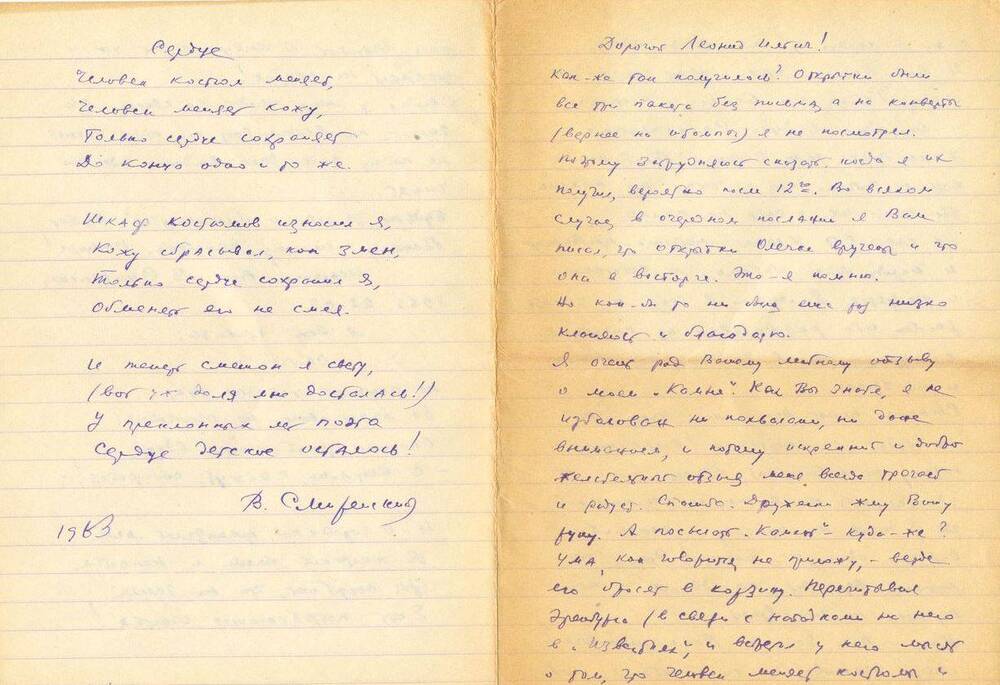 Сердце
Человек костюм меняет,
Человек меняет кожу,
Только сердце сохраняет
До конца одно и то же.
Шкаф костюмов износил я,
Кожу сбрасывал, как змеи,
Только сердце сохранил я,
Обменять его не смея.
И теперь смешон я свету,
(вот уж доля мне досталась!)
У преклонных лет поэта
Сердце детское осталось!
В. Смиренский
1963
Дорогой Леонид Ильич!
Как-же так получилось? Открытки были
все три пакета без письма, а на конверты
(вернее на штампы) я не посмотрел.
Поэтому затрудняюсь сказать, когда я их
получил, вероятно после 12го. Во всяком
случае, в очередном послании я Вам
писал, что открытки Олечке вручены и что
она в восторге. Это-я помню.
Но как-бы то ни было еще раз низко
кланяюсь и благодарю.
Я очень рад Вашему лестному отзыву
о моем "Камне". Как Вы знаете, я не
избалован ни похвалами, ни даже
вниманием, и потому искренний и добро
желательный отзыв меня всегда трогает
и радует. Спасибо. Дружески жму Вашу
руку. А посылать "Камень" - куда-же?
Ума, как говорится, не приложу, - везде
его бросят в корзину. Перечитывал
Эренбурга (в связи с нападками на него
в "Известиях", и встретил у него мысль
о том, что человек меняет костюмы и